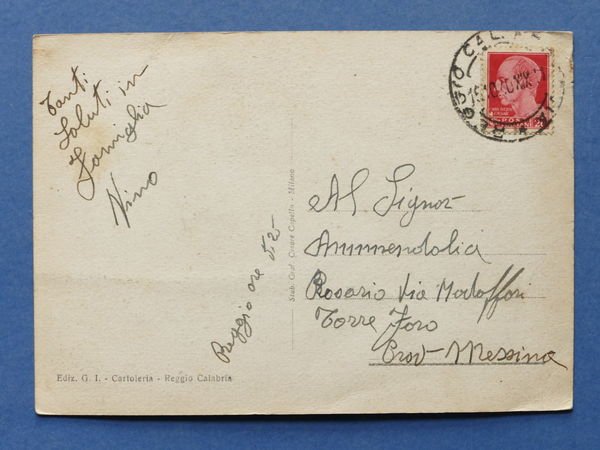 Tanti
Saluti in
Famiglia
Nino
Reggio ore 12
Al Signor
Ammendolia
Rosario Via Madaffori
Torre Faro
Prov Messina
Stab. Graf. Cesare Capello - Milano
Ediz. G. I. - Cartoleria - Reggio Calabria
REGGIO CALABRIA